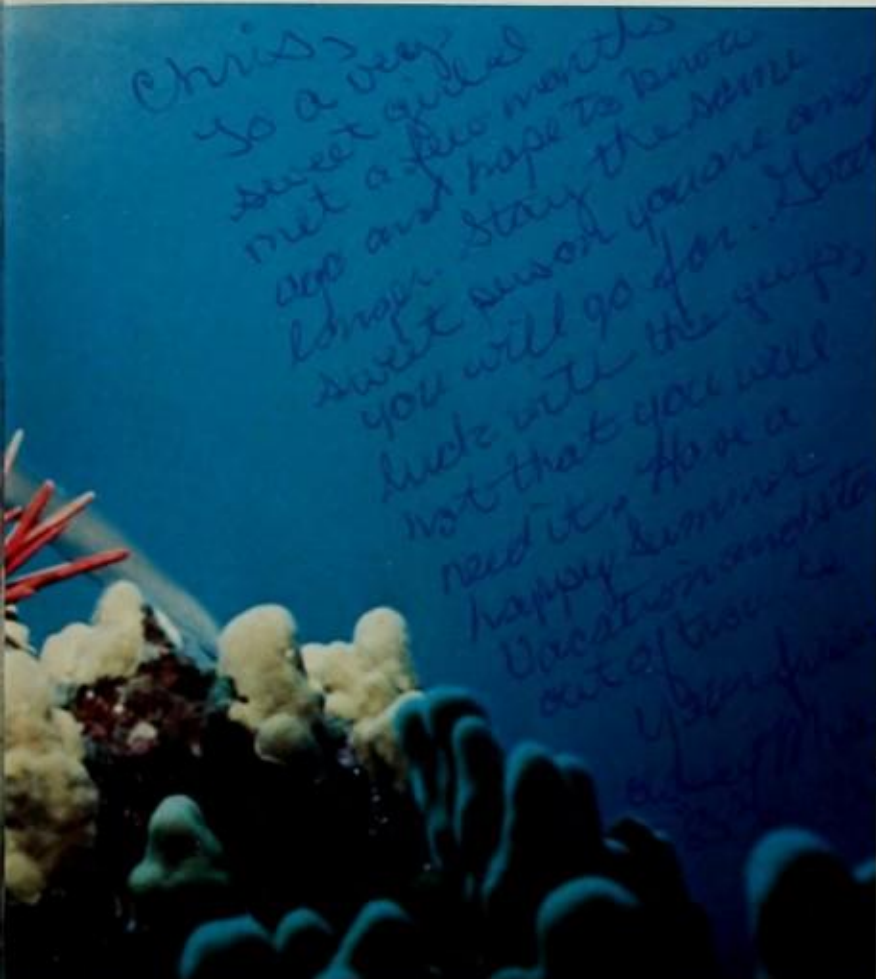 Chris,
To a very
sweet girl I
met a few months
ago and hope to know
longer. Stay the same
sweet person you are and
you will go far. Good
luck with the guys,
not that you will
need it. Have a
happy Summer
Vacation and
out of
Your